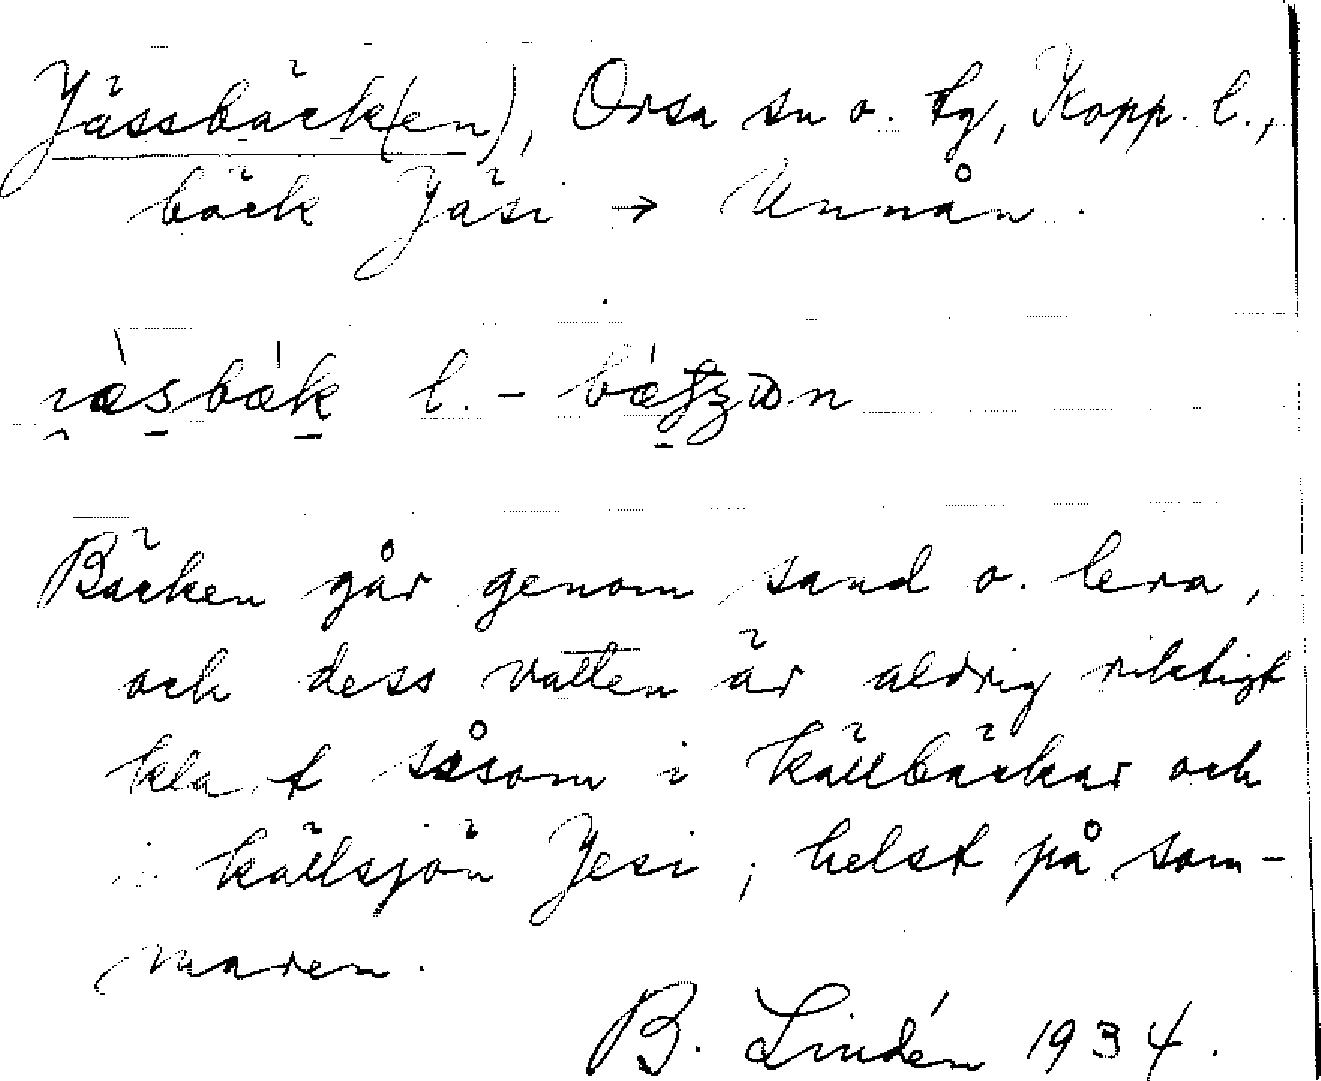 Jässbäck(en), Orsa sn o. tg, Kopp. l.,
bäck Jäsi → Unnån.
l. -
Bäcken går genom sand o. lera,
och dess vatten är aldrig riktigt
klart såsom i källbäckar och
i källsjön Jesi, helst på som-
maren.
B. Lindén 1934.